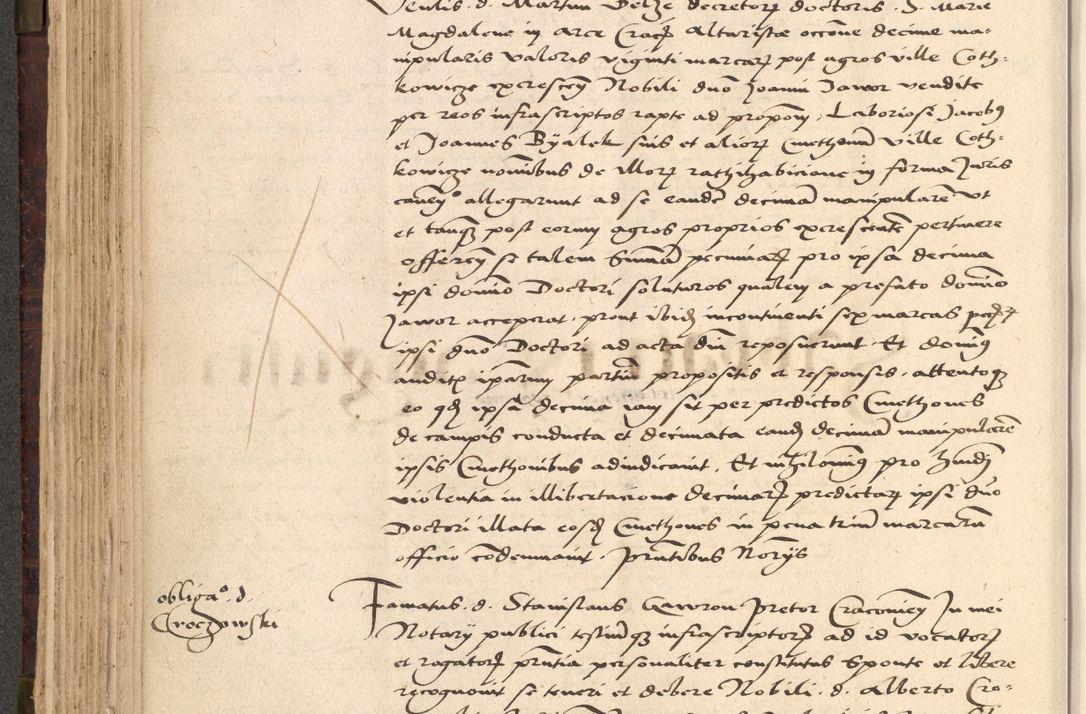 Venlis d. Martini Belze decretorꝝ doctoris S. Marie
Magdalene in arce Cracꝭ altaristæ occōne decime ma-
nipularis valoris viginti marcarꝝ post agros ville Coth-
kowicze excrescenꝭ Nobili dn̄o Joanni Jawor vendite
per reos infrascriptos rapte ad propoōm, Laboriosi Jacobꝰ
et Joannes Byalek suis et aliorꝝ Cmethonū ville Coth-
kowicze nominibus de illorꝝ rathihabicione in forma Juris
caueñ allegarunt ad se eandē decimā manipularē vt
et tanqꝫ post eorum agros proprios excrescentē pertinere
offereñ se talem summā pecuniarꝝ pro ipsa decima
ipsi domīo Doctori soluturos qualem a prefato domīo
Jawor acceperat, prout ibidꝫ incontinenti sex marcas
ipsi dn̄o Doctori ad acta dnī reposuerunt. Et domīꝰ
auditꝭ ipsarum partiū propositis et responsis, attentoqꝫ
eo qđ ipsa decima iam sit per predictos Cmethones
de campis conducta et decimata eandꝫ decimā manipularē
ipsis Cmethonibus adiudicauit. Et nihilominꝰ pro hmōi
violentia in illibertacione decimarꝝ predictarꝝ ipsi dn̄o
Doctori illata eosdꝫ Cmethones in pena triū marcarū
officio cōdemnauit. Pn̄tibus Norijs
obligaº d.
Croczowski
Famatus d. Stanislaus Gawron Pretor Cracouieñ In mei
Notarij publici testiūqꝫ infrascriptorꝝ ad id vocatorꝝ
et rogatorꝝ pn̄tia personaliter constitutus sponte et libere
recognouit se teneri et debere Nobili d. Alberto Cro-